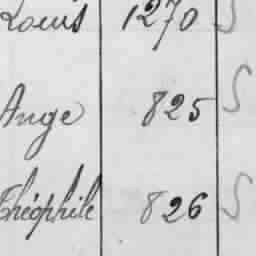 Louis 1270 S
Ange 825 S
Théophile 826 S